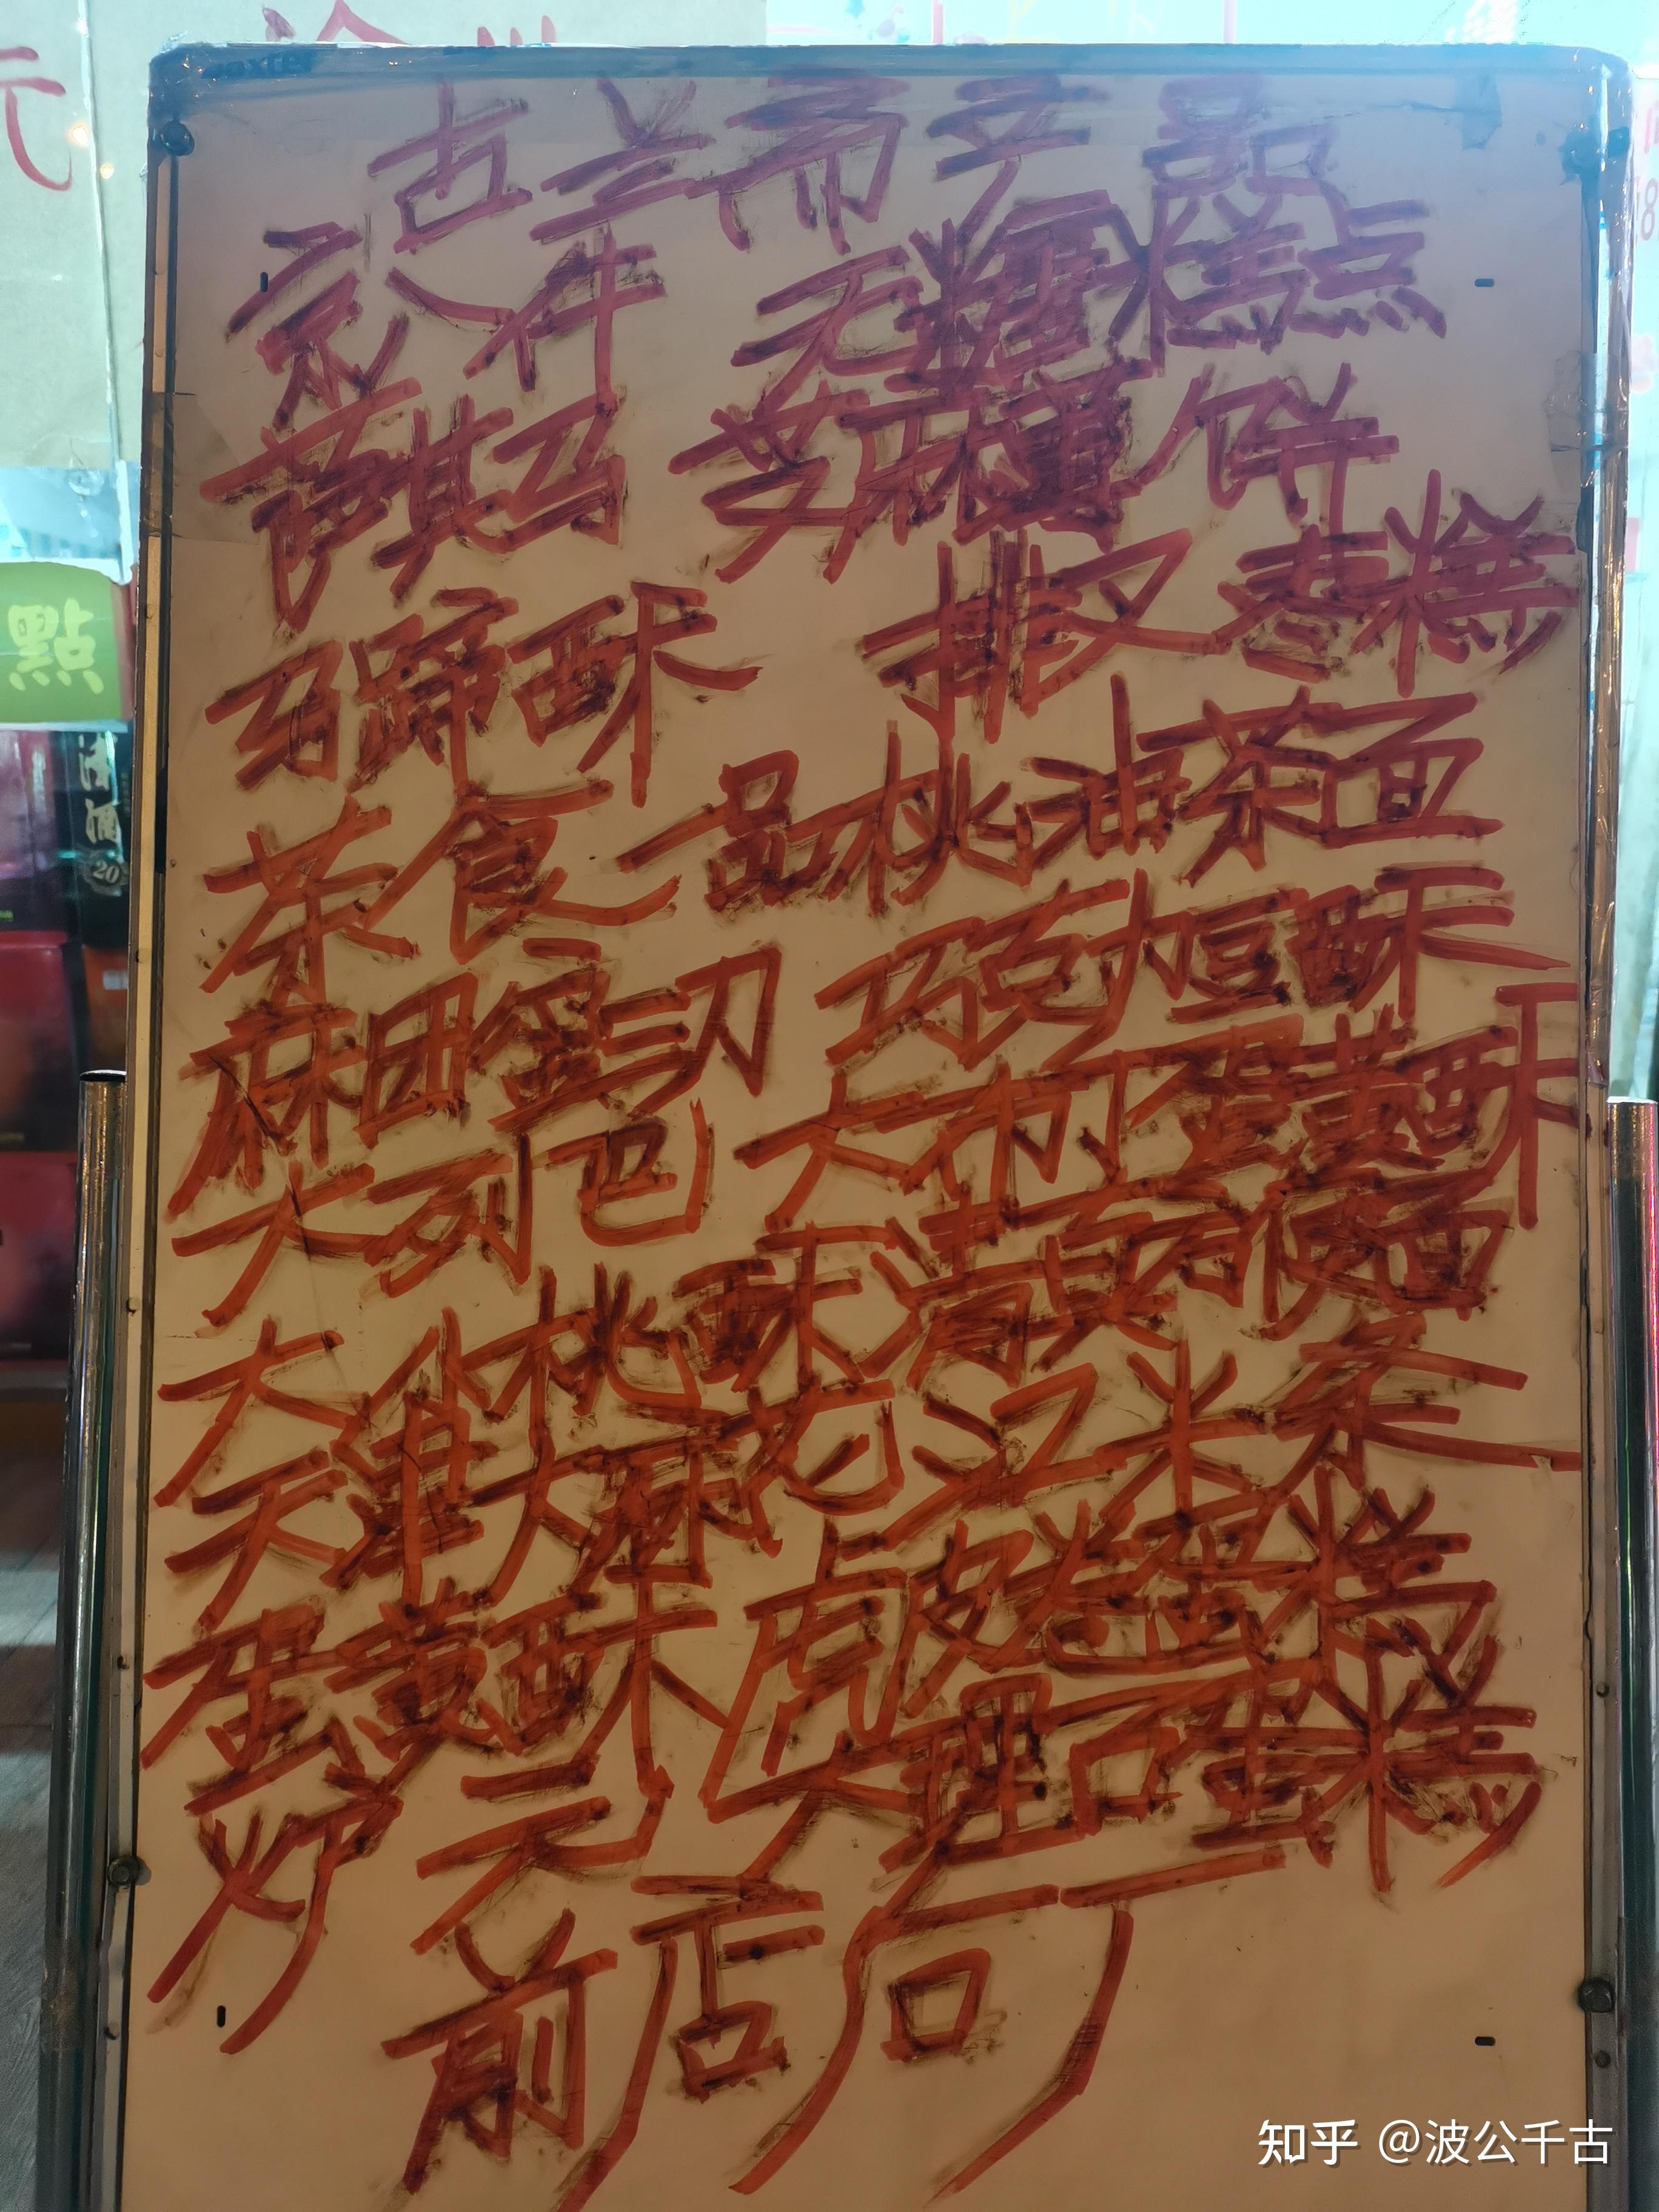 元
點
20
古兰斋产品
京八件 无糖糕点
萨其马 芝麻薄饼
马蹄酥 排叉枣糕
茶食 一品桃油茶面
麻团蜜三刀 巧克力豆酥
大列巴 大布丁蛋黄酥
大油桃酥 清真方便面
天津大麻花 江米条
蛋黄酥 虎皮卷蛋糕
炉 元 大理石蛋糕
前店后
知乎 @波公千古